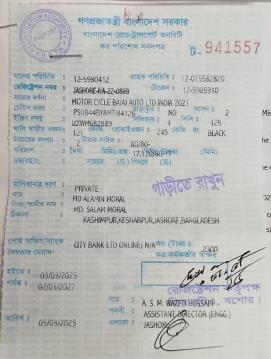 গণপ্রজাতন্ত্রী বাংলাদেশ সরকার
বাংলাদেশ রোড ট্রান্সপোর্ট অথরিটি
কর পরিশোধ সনদপত্র
ট- 941557
যানের পরিচিতি : 12-5980412 গ্রাহক পরিচিতি : 12-015582820
রেজিষ্ট্রেশন নম্বর : JASHORE-HA-22-0889 টোকেন : 12-65985910
যানের বর্ণনা : MOTOR CYCLE BAJAJ AUTO LTD INDIA 2021
চেসিস নম্বর : NO আসন : 2
ইঞ্জিন নম্বর : সিসি : 125
খালি গাড়ীর ওজন : 121 কেজি, বোঝাই ওজন : 245 কেজি রং BLACK
2 80/80-
17,120/80-17
গাড়ীতে রাখুন
মালিকানার ধরণ : PRIVATE
নাম : MD ALAMIN MORAL
MD. SALAM MORAL
ঠিকানা : KASHIMPUR,KESHABPUR,JASHORE,BANGLADESH
পোষ্ট অফিস/ব্যাংক : CITY BANK LTD ONLINE/ N/A কর (টাকা) : 2300
হইতে : 03/03/2025
পর্যন্ত : 02/03/2027
নাম : A. S. M. WAZED HOSSAIN
পদবী : ASSISTANT DIRECTOR (ENGG.)
তারিখ : 05/03/2025 এলাকা : JASHORE